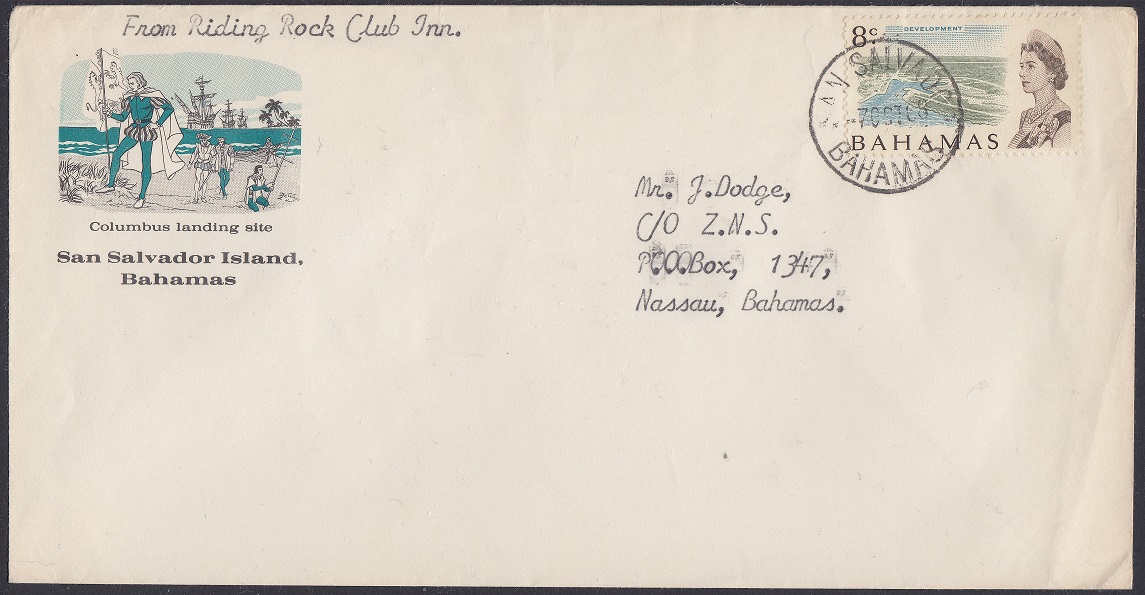 From Riding Rock Club Inn.
Columbus landing site
San Salvador Island,
Bahamas
8c
DEVELOPMENT
BAHAMAS
SAN SALVADOR
7 OCT 68
BAHAMAS
Mr. J. Dodge,
C/O Z.N.S.
P.O.Box, 1347,
Nassau, Bahamas.